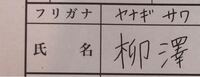 フリガナ ヤナギ サワ
氏名 柳澤